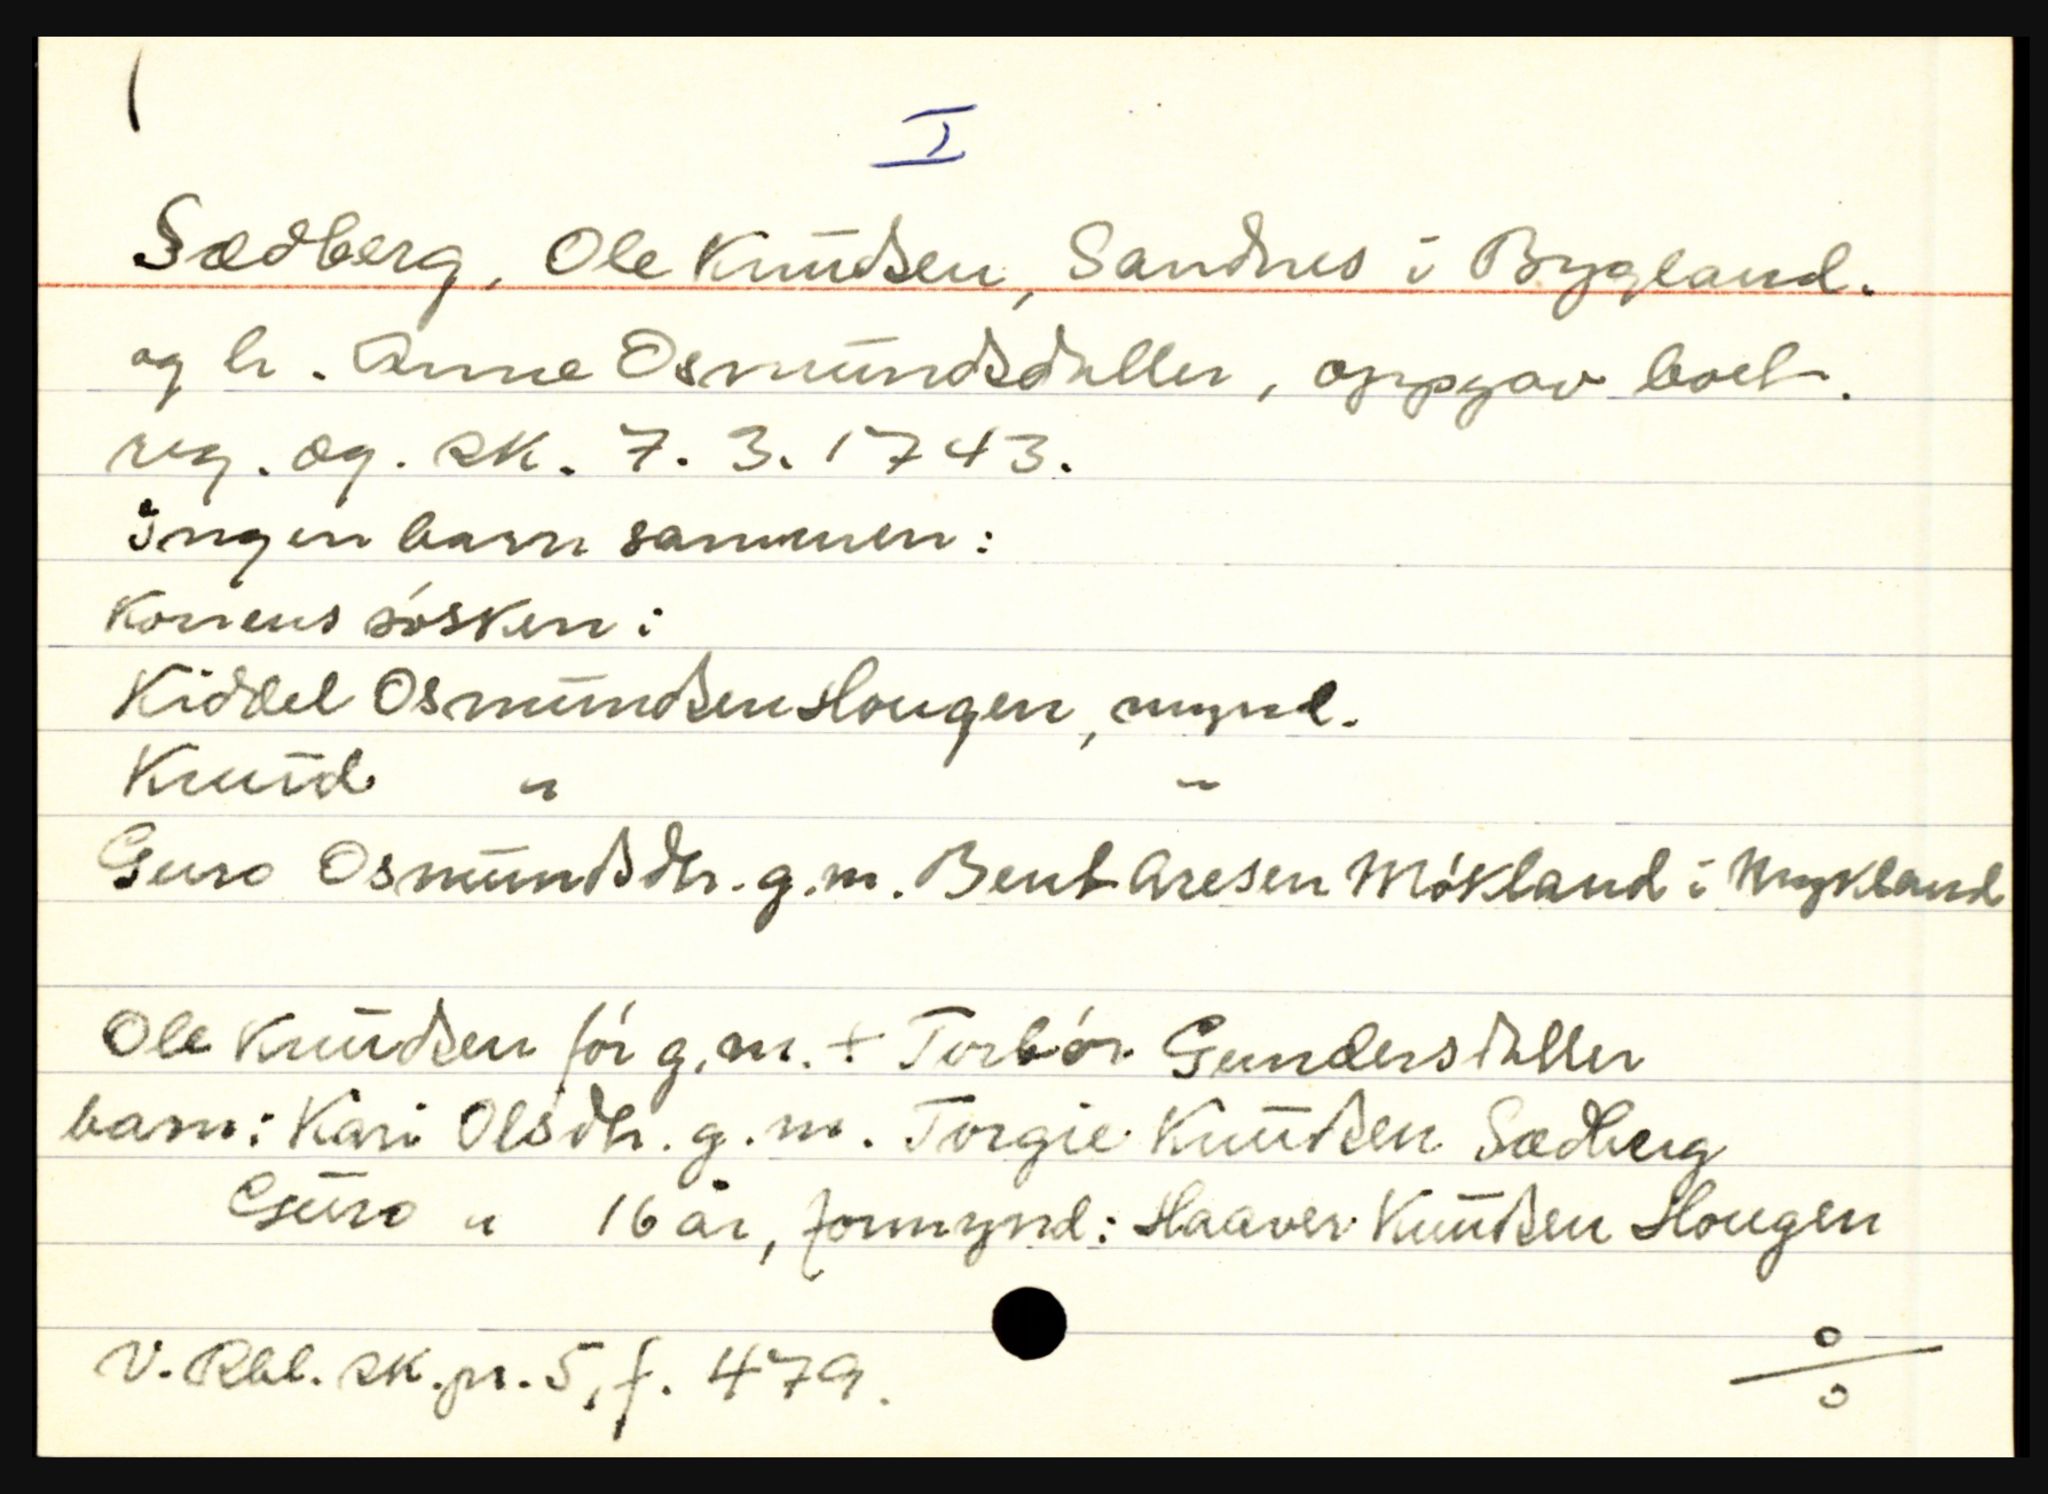 I
Sædberg, Ole Knudsen, Sandnes i Bygland.
og h. Anne Osmundsdatter, oppgav boet.
reg. og. sk. 7. 3. 1743.
Ingen barn sammen:
Konens søsken:
Kiddel Osmundsen Hougen, mynd.
Knud " "
Guro Osmundsdtr. g.m. Bent Aresen Møkland i Mykland
Ole Knudsen før g.m. + Torbór Gundersdatter
barn: Kari Olsdtr. g.m. Torgie Knudsen Sædberg
Guro " 16 år, formynd: Haaver Knudsen Hougen
V. Rbl. sk.pr. 5, f. 479.
o/o